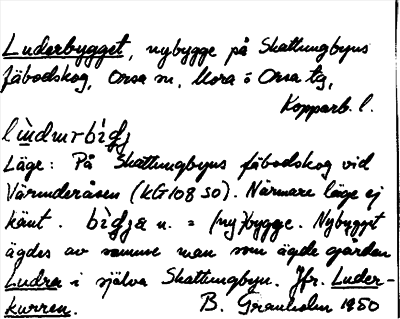 Luderbygget, nybygge på Skattungbyns
fäbodskog, Orsa sn, Mora o Orsa tg,
Kopparb. l.
Läge: På Skattungbyns fäbodskog vid
Värmderåsen (KG 108 SO). Närmare läge ej
känt. n. = (ny)bygge. Nybygget
ägdes av samme man som ägde gården
Ludra i själva Skattungbyn. Jfr. Luder-
kurren. B. Granholm 1950